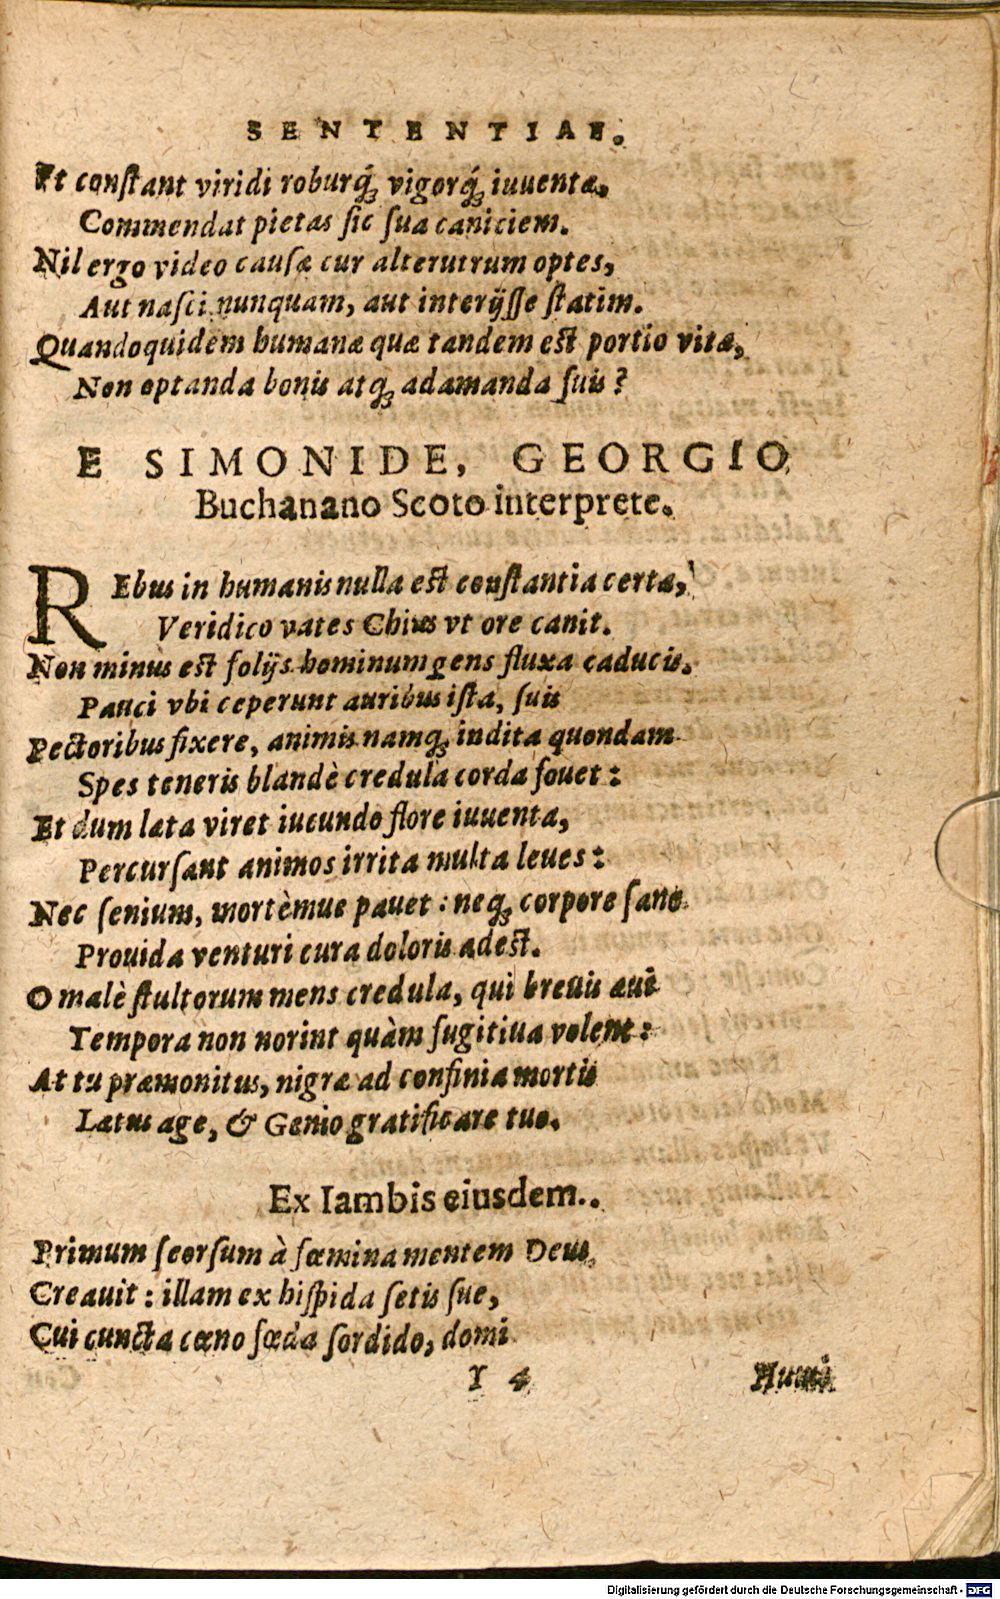 SENTENTIAE.
Et conſtant viridi roburq́ꝫ vigorq́ꝫ iuuentæ,
Commendat pietas ſic ſua caniciem.
Nil ergo video cauſæ cur alterutrum optes,
Aut naſci nunquam, aut interijſſe ſtatim.
Quandoquidem humanæ quæ tandem est portio vitæ,
Non optanda bonis atqꝫ adamanda ſuis?
E SIMONIDE, GEORGIO
Buchanano Scoto interprete.
REbus in humanis nulla est conſtantia certa,
Veridico vates Chius vt ore canit.
Non minus est folijs hominum gens fluxa caducis.
Pauci vbi ceperunt auribus iſta, ſuis
Pectoribus fixere, animis namqꝫ indita quondam
Spes teneris blandè credula corda fouet:
Et dum læta viret iucundo flore iuuenta,
Percurſant animos irrita multa leues:
Nec ſenium, mortèmue pauet: neqꝫ corpore ſano
Prouida venturi cura doloris adest.
O malè ſtultorum mens credula, qui breuis æui
Tempora non norint quàm fugitiua volent:
At tu præmonitus, nigræ ad confinia mortis
Lætus age, & Genio gratificare tuo.
Ex Iambis eiusdem.
Primum ſeorſum à fœmina mentem Deus
Creauit: illam ex hiſpida ſetis ſue,
Cui cuncta cœno fœda ſordido, domi
I 4
Humi
Digitalisierung gefördert durch die Deutsche Forschungsgemeinschaft - DFG